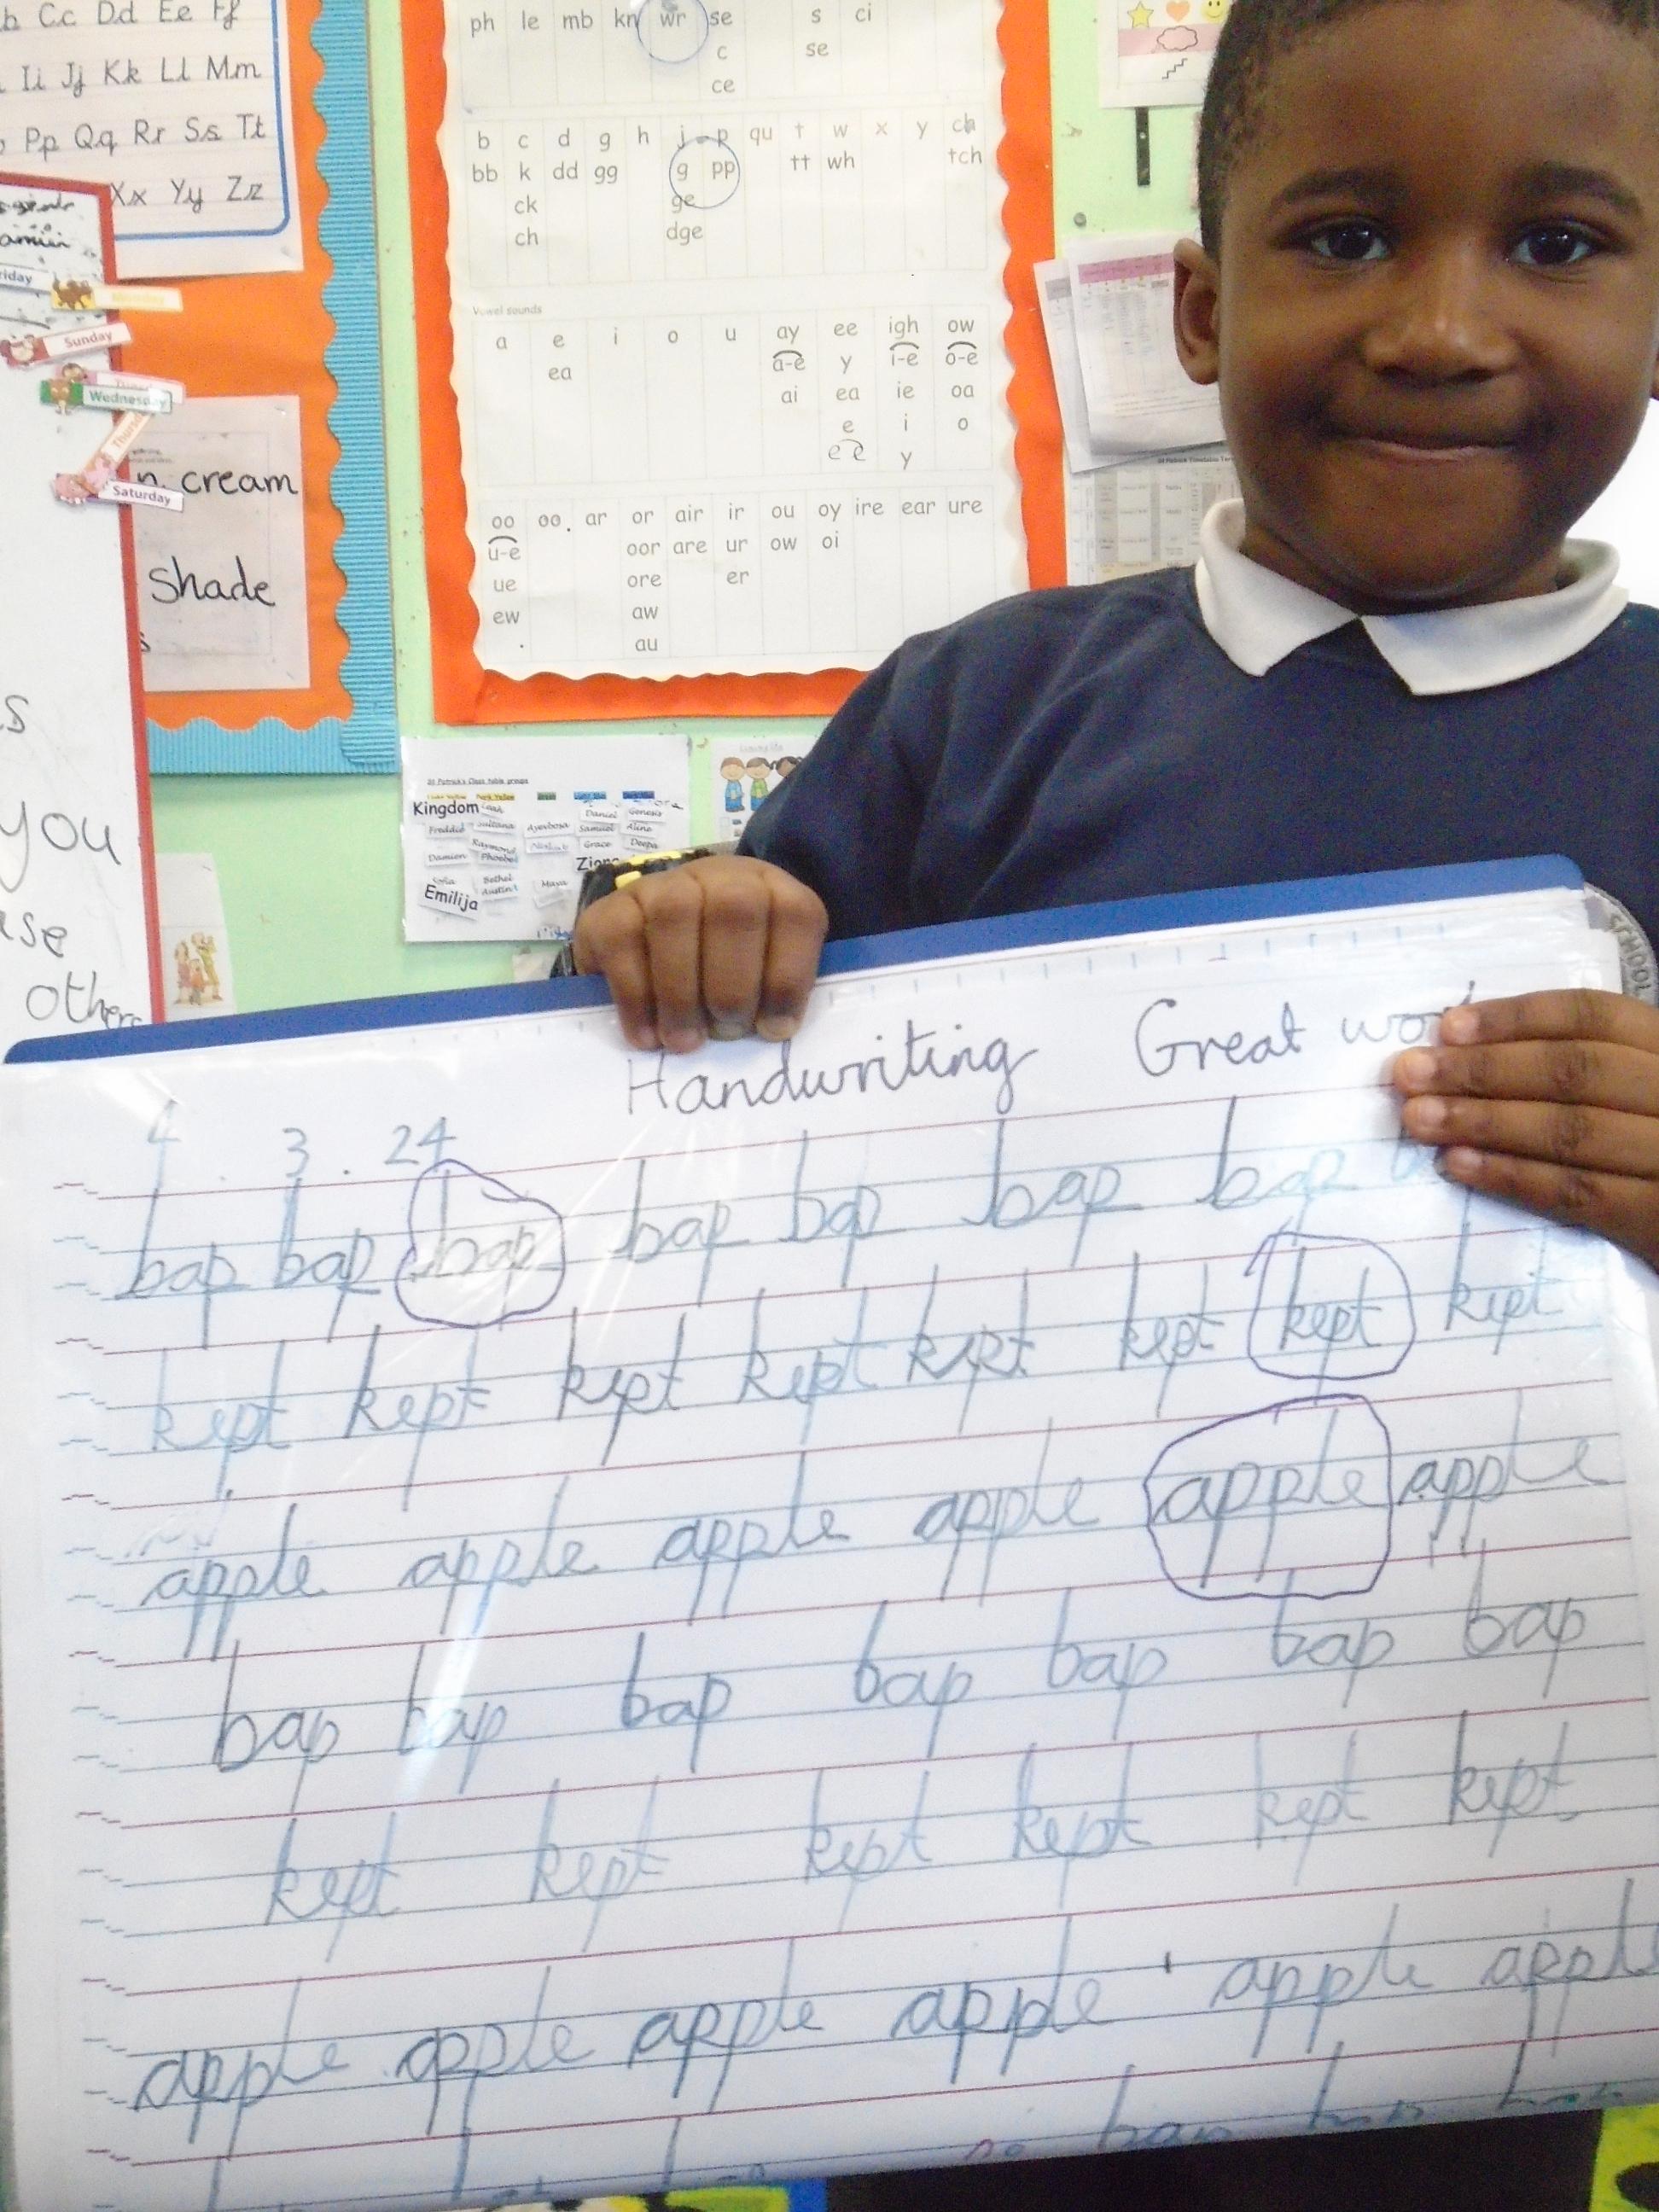 Cc Dd Ee Ff
Ii Jj Kk Ll Mm
Pp Qq Rr Ss Tt
Xx Yy Zz
Sunday
Wednesday
Saturday
cream
shade
you
others
ph le mb kn wr se s ci
c se
ce
b c d g h j p qu t w x y ch
bb k dd gg g pp tt wh tch
ck ge
ch dge
Vowel sounds
a e i o u ay ee igh ow
ea a-e y i-e o-e
ai ea ie oa
e i o
e-e y
oo oo ar or air ir ou oy ire ear ure
u-e oor are ur ow oi
ue ore er
ew aw
au
Kingdom
Daniel Genesis
Freddie Sultana Ayevbosa Samuel Alina
Raymond Grace Deepa
Damien Phoebe
Bethel Maya
Emilija
SCHOOL
Handwriting Great
4 . 3 . 24
bap bap bap bap bap bap bap
kept kept kept kept kept kept kept kept
apple apple apple apple apple apple
bap bap bap bap bap bap bap
kept kept kept kept kept kept
apple apple apple apple apple apple